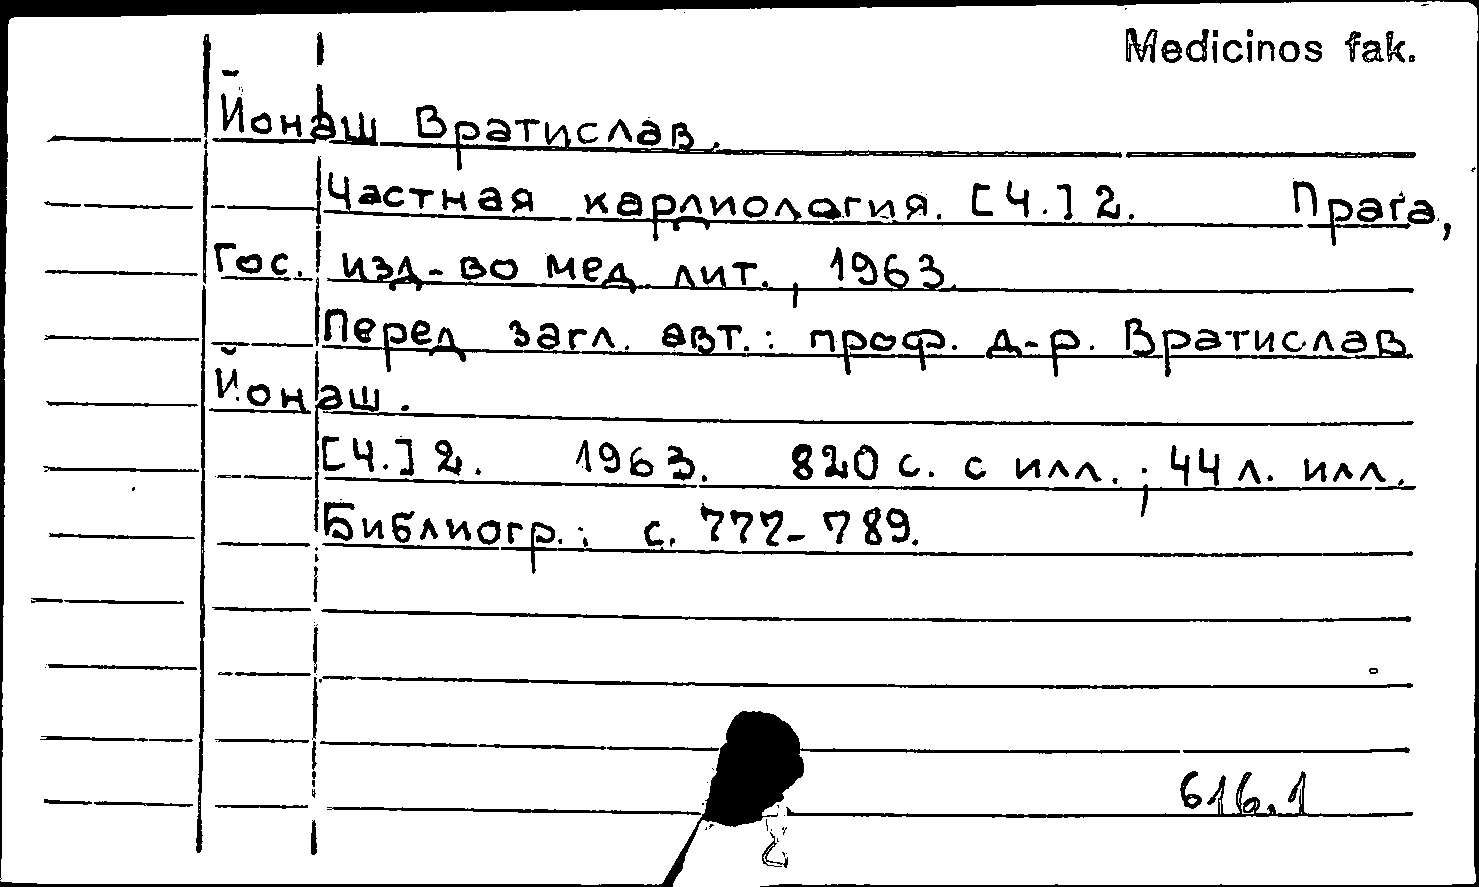 Medicinos fak.
Йонаш Вратислав.
Частная кардиология. [Ч.] 2. Прага,
Гос. изд-во мед. лит., 1963.
Перед загл. авт.: проф. д-р. Вратислав
Йонаш.
[Ч.] 2. 1963. 820 с. с илл.; 44 л. илл.
Библиогр.: с. 777-789.
616.1